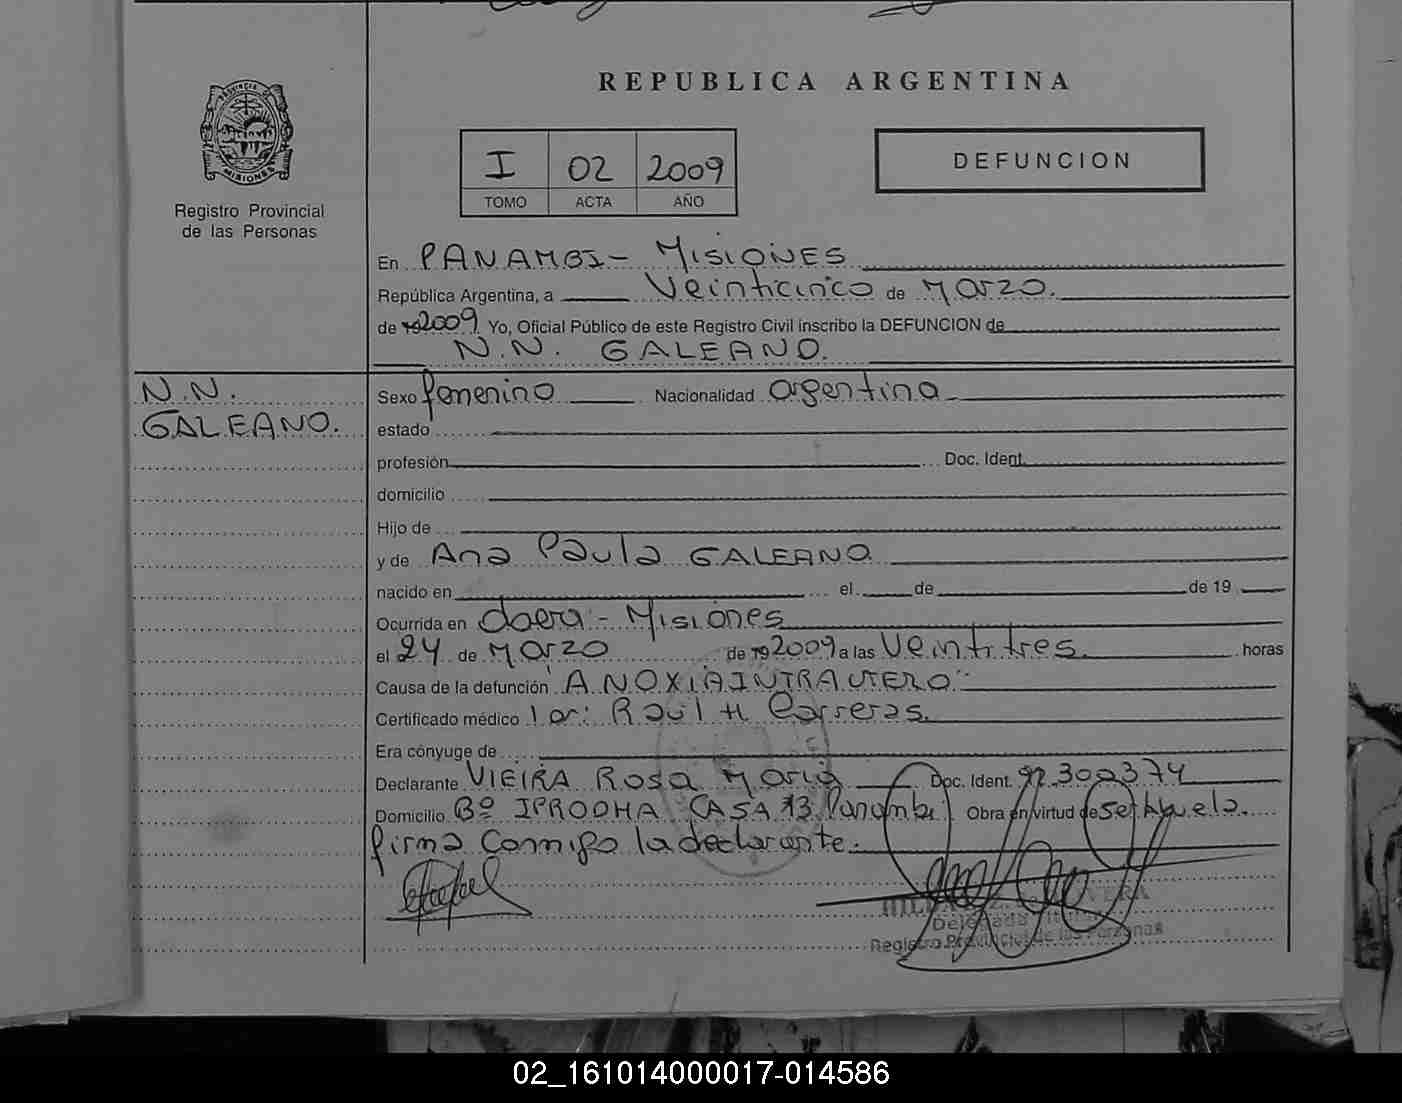 REPUBLICA ARGENTINA
PROVINCIA DE
MISIONES
Registro Provincial
de las Personas
I 02 2009
TOMO ACTA AÑO
DEFUNCION
En PANAMBI - MISIONES
República Argentina, a Veinticinco de Marzo.
de 19 2009 Yo, Oficial Público de este Registro Civil inscribo la DEFUNCION de
N.N. GALEANO.
N.N.
GALEANO.
Sexo femenino Nacionalidad argentina
estado
profesión Doc. Ident.
domicilio
Hijo de
y de Ana Paula GALEANO
nacido en el de de 19
Ocurrida en Oberá - Misiones
el 24 de Marzo de 19 2009 a las Veintitres. horas
Causa de la defunción ANOXIA INTRAUTERO
Certificado médico Raúl H Carreras.
Era cónyuge de
Declarante VIEIRA Rosa María Doc. Ident. 92.300374
Domicilio Bº IPRODHA CASA 13 Panambi Obra en virtud de ser Abuela.
firma Conmigo la declarante.
Delegada Titular
Registro Provincial de las Personas
02_161014000017-014586